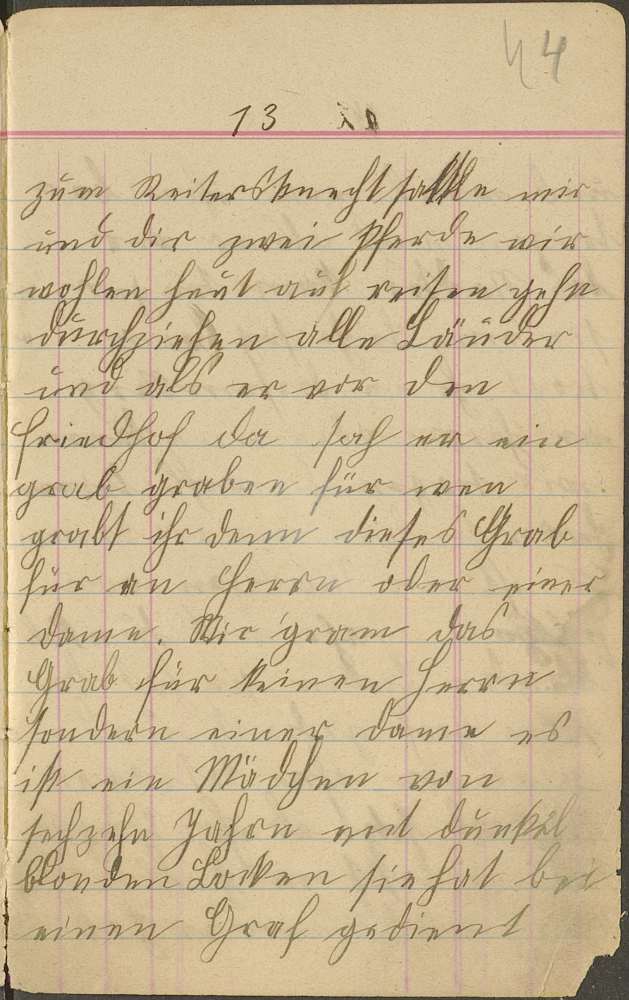 44
13
zum Reitersknecht sattle mir
und dir zwei Pferde wir
wohlen heut auf reisen gehn
durchziehen alle Länder
und als er vor den
friedhof da sah er ein
grab graben für wen
grabt ihr denn dieses Grab
für an Herrn oder einer
dame. Wir gram das
Grab für keinen Herrn
sondern einer dame es
ist ein Mädchen von
sechzehn Jahrn mit dunkel
blonden Locken sie hat bei
einen Graf gedient